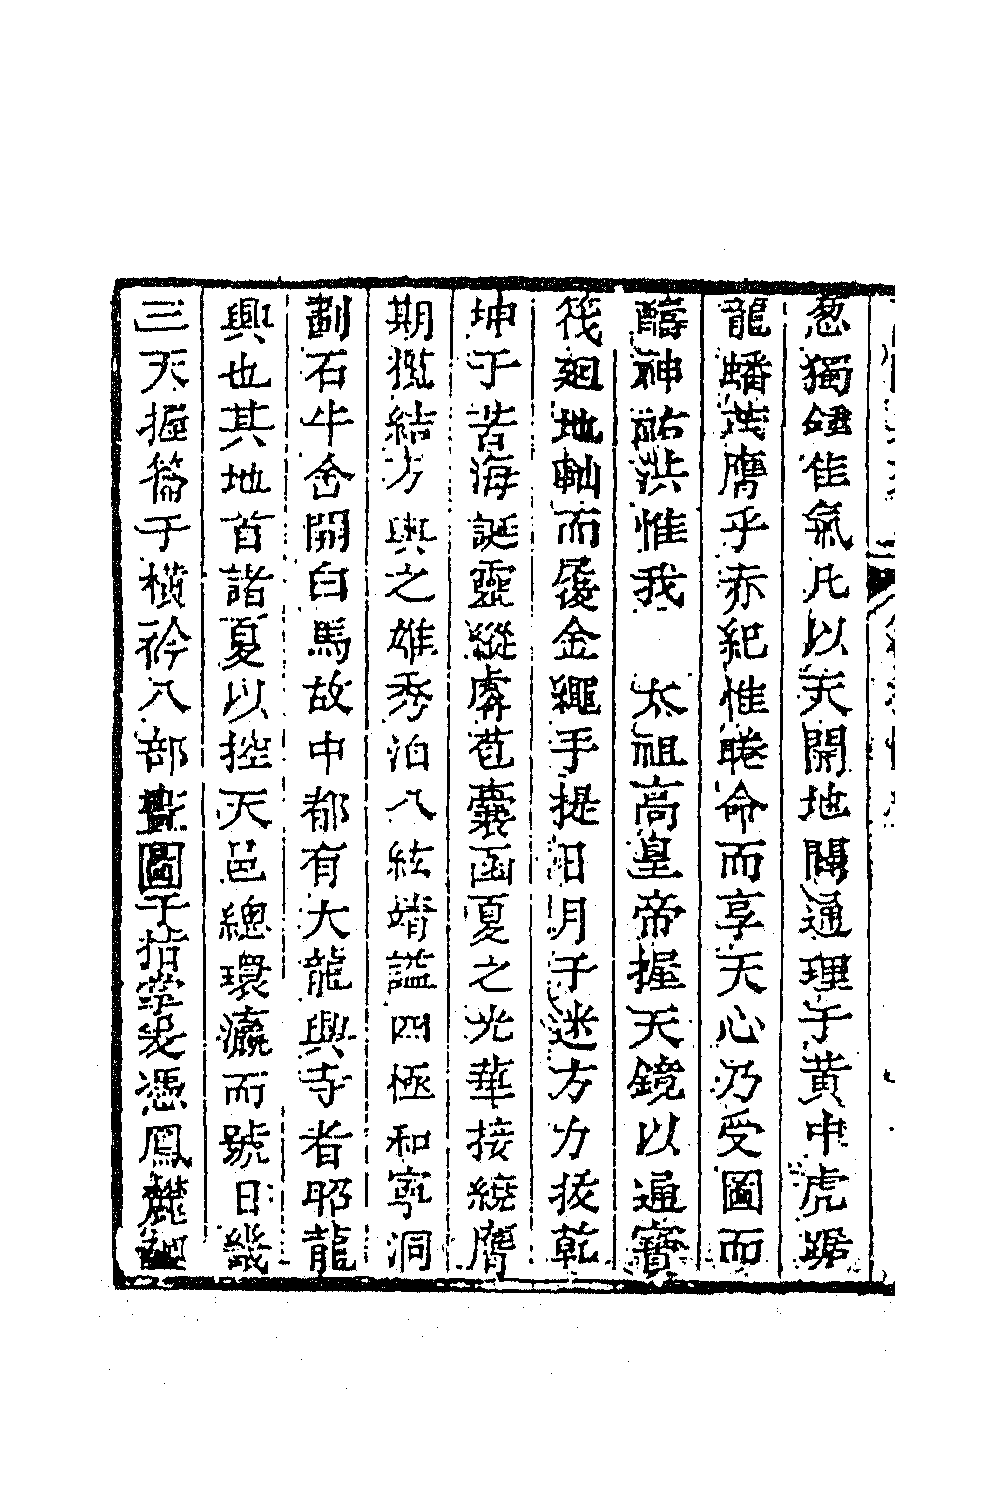 葱獨鍾佳氣凡以天開地闢通理于黃中虎踞
龍蟠茂膺乎赤紀惟睠命而享天心乃受圖而
醻神祐洪惟我 太祖高皇帝握天鏡以通寶
筏廻地軸而履金繩手提日月子迷方力拔乾
坤于苦海誕靈縱膺苞囊函夏之光華接繞膺
期攬結方輿之雄秀泊八紘靖謐四極和寧洞
劃石牛舍開白馬故中都有大龍興寺者昭龍
興也其地首諸夏以控天邑總環瀛而號日畿
三天握籥于橫衿八部 圖于指掌爰憑鳳麓